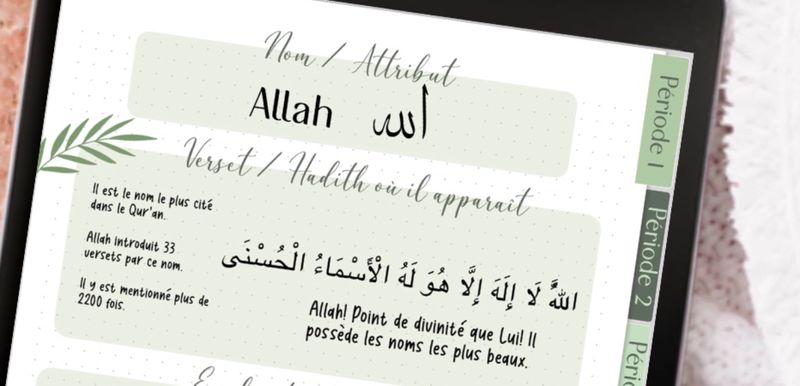 Nom / Attribut
Allah الله
Verset / Hadith où il apparaît
Il est le nom le plus cité
dans le Qur'an.
Allah introduit 33
versets par ce nom.
Il y est mentionné plus de
2200 fois.
اللَّهُ لَا إِلَهَ إِلَّا هُوَ لَهُ الْأَسْمَاءُ الْحُسْنَى
Allah! Point de divinité que Lui! Il
possède les noms les plus beaux.
Période 1
Période 2